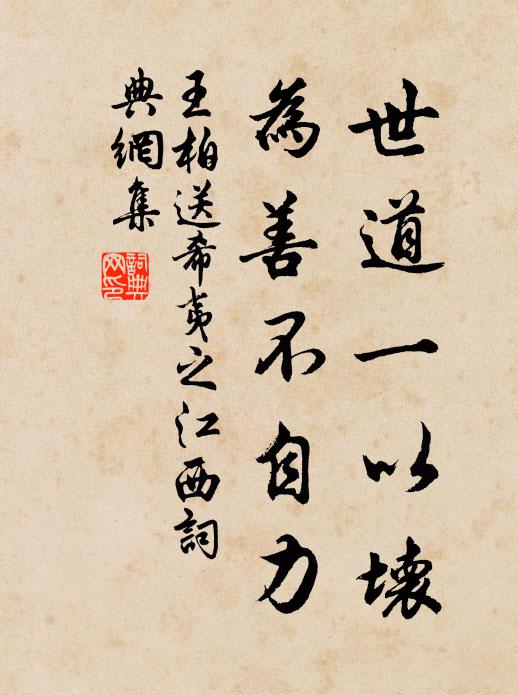 世道一以壞
為善不自力
王柏送希夷之江西詞
典網集
詞典
網印